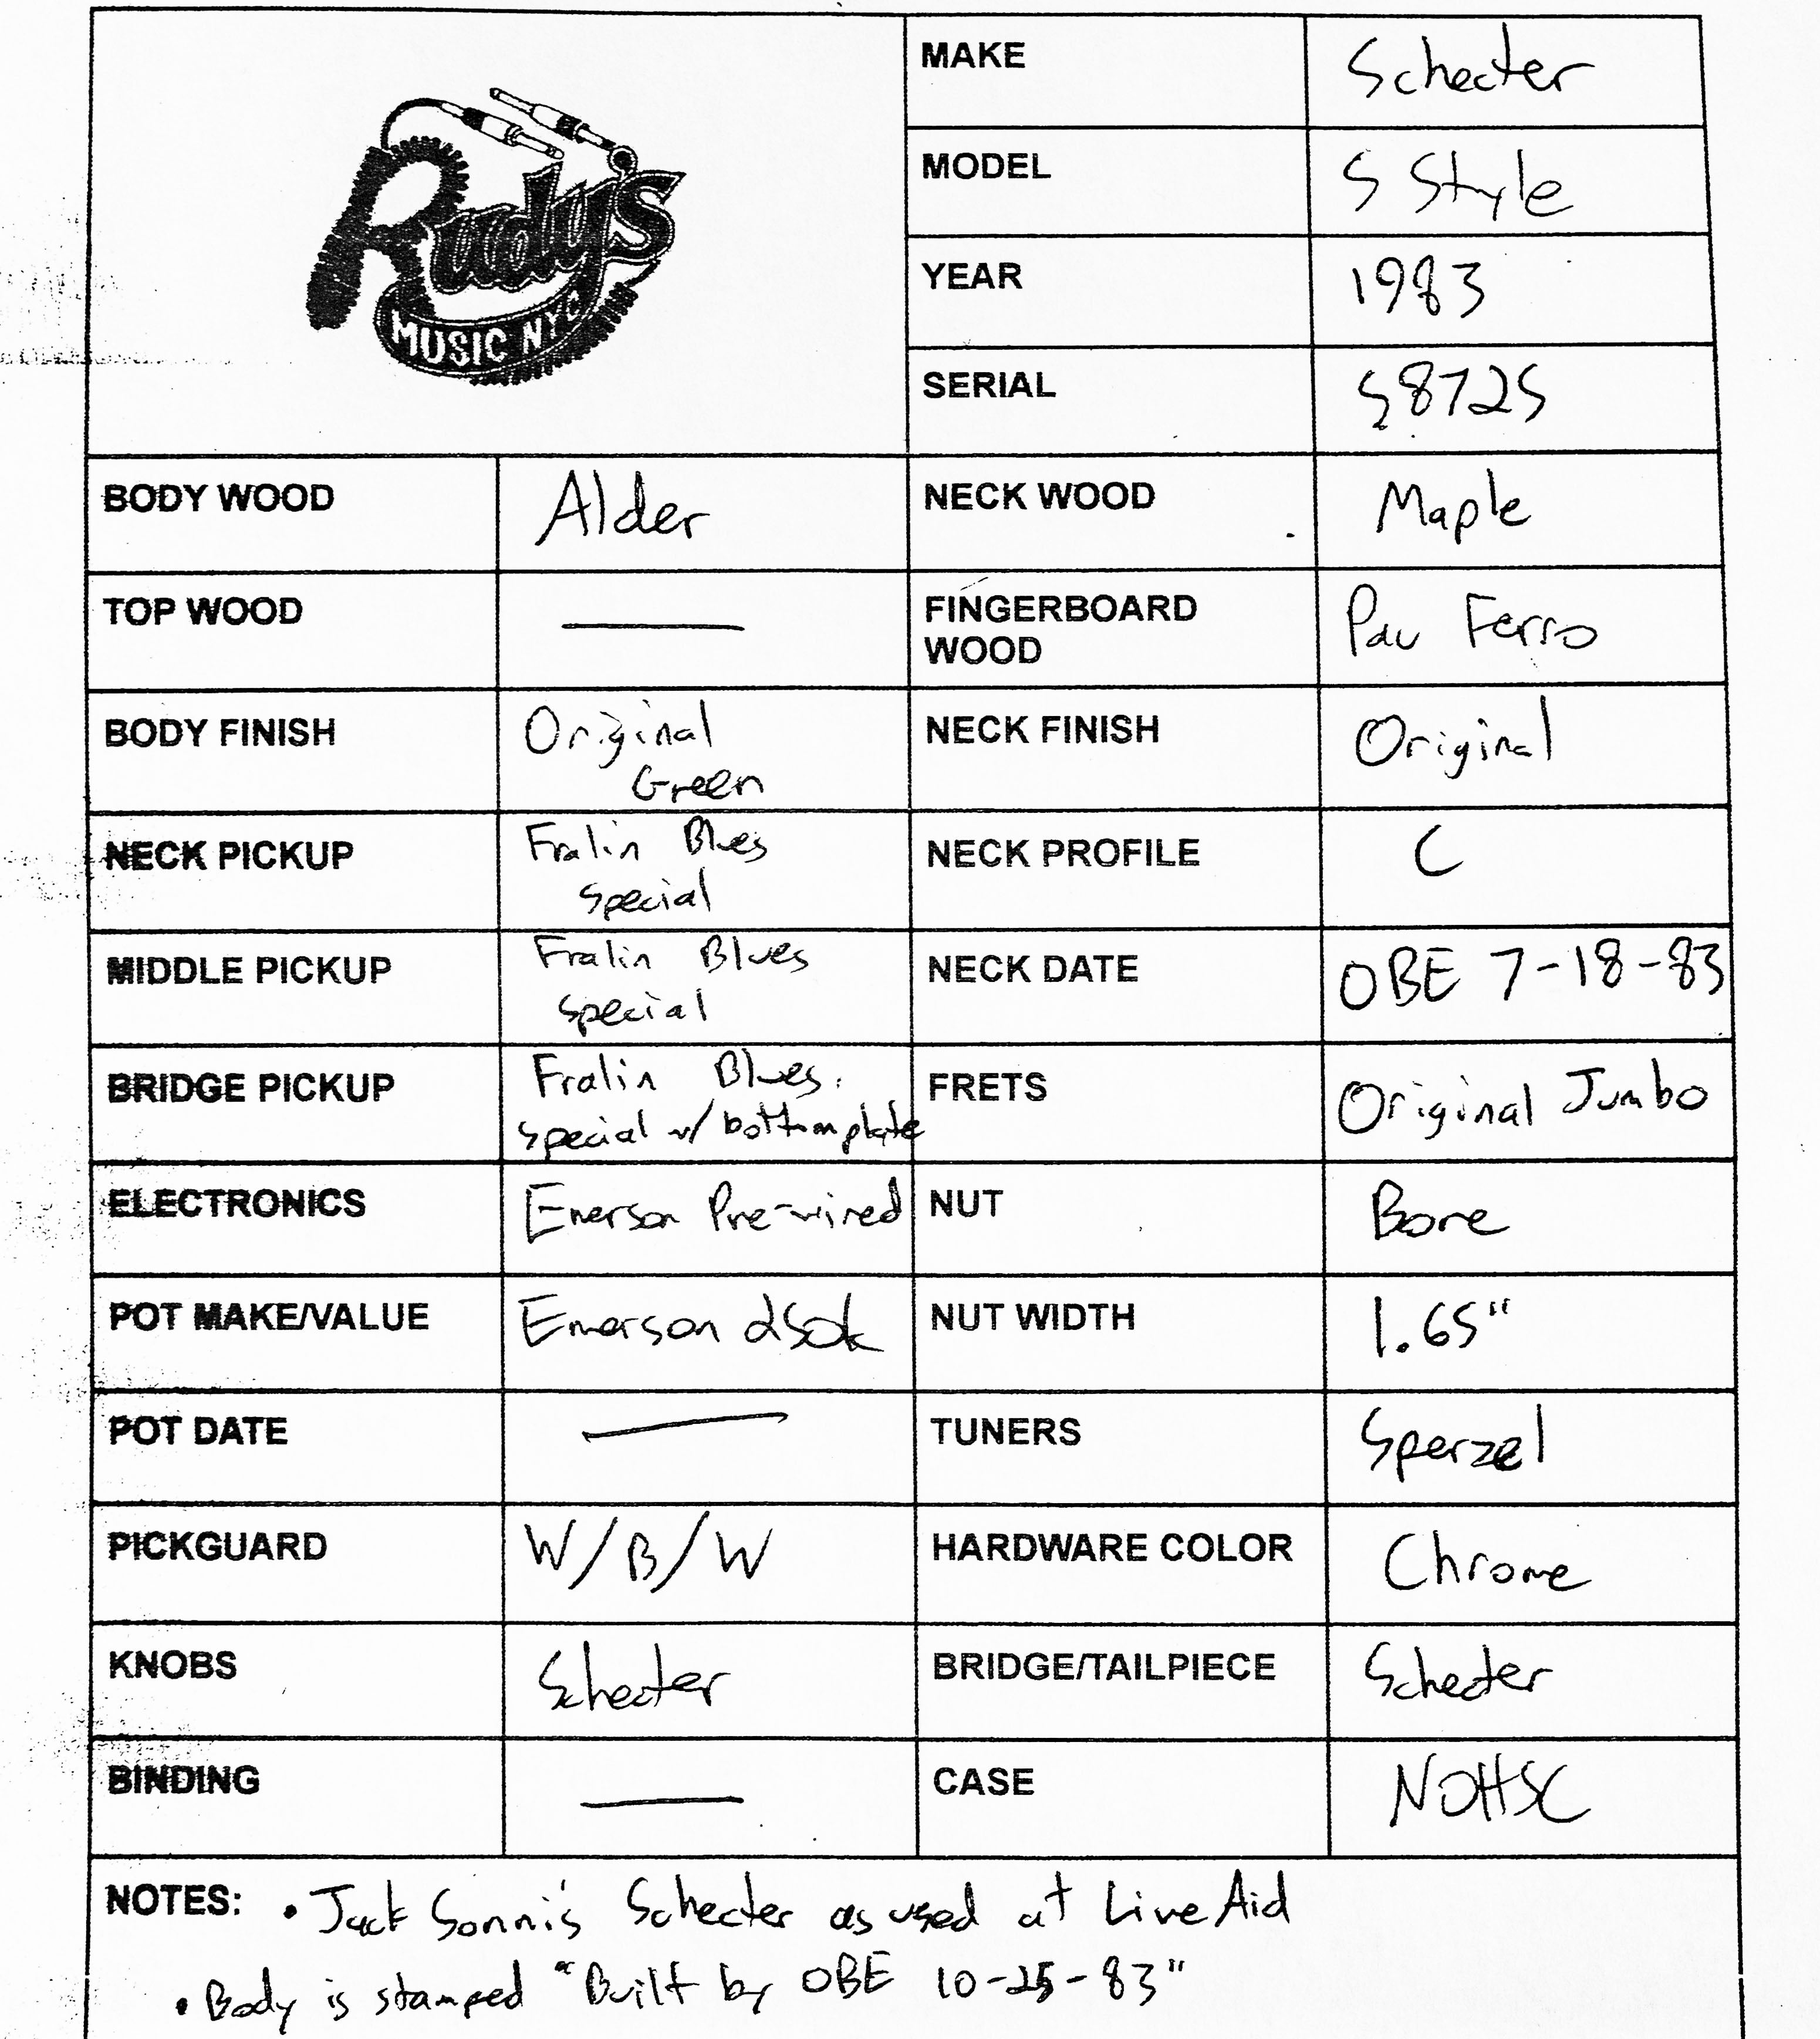 Rudy's
MUSIC NYC
MAKE Schecter
MODEL S Style
YEAR 1983
SERIAL S8725
BODY WOOD Alder NECK WOOD Maple
TOP WOOD — FINGERBOARD WOOD Pau Ferro
BODY FINISH Original Green NECK FINISH Original
NECK PICKUP Fralin Blues Special NECK PROFILE C
MIDDLE PICKUP Fralin Blues Special NECK DATE OBE 7-18-83
BRIDGE PICKUP Fralin Blues special w/ bottom plate FRETS Original Jumbo
ELECTRONICS Emerson Pre-wired NUT Bone
POT MAKE/VALUE Emerson 250k NUT WIDTH 1.65"
POT DATE — TUNERS Sperzel
PICKGUARD W/B/W HARDWARE COLOR Chrome
KNOBS Schecter BRIDGE/TAILPIECE Schecter
BINDING — CASE NOHSC
NOTES: • Jack Sonni's Schecter as used at Live Aid
• Body is stamped "Built by OBE 10-25-83"